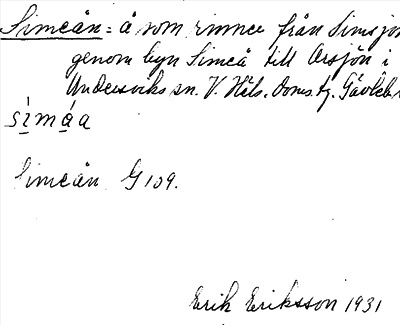 Simeån = å som rinner från Simsjön
genom byn Simeå till Orsjön i
Undersviks sn. V. Häls. doms. tg. Gävleb
sìmáa
Simeån G 109.
Erik Eriksson 1931